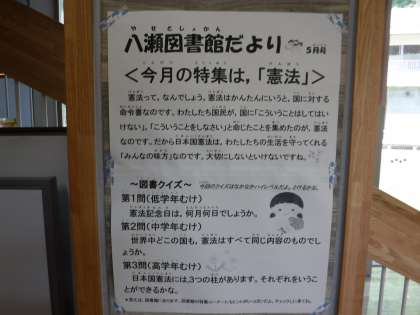 やせとしょかん
八瀬図書館だより
5月号
こんげつ とくしゅう けんぽう
＜今月の特集は，「憲法」＞
憲法って，なんでしょう。憲法はかんたんにいうと，国に対する
命令書なのです。わたしたち国民が，国に「こういうことはしてはい
けない」，「こういうことをしなさい」と命じたことを集めたのが，憲法
なのです。だから日本国憲法は，わたしたちの生活を守ってくれる
「みんなの味方」なのです。大切にしないといけないですね。
～図書クイズ～
今回のクイズはなかなかハイレベルだよ。とけるかな。
第1問(低学年むけ)
憲法記念日は，何月何日でしょうか。
第2問(中学年むけ)
世界中どこの国も，憲法はすべて同じ内容のものでし
ょうか。
第3問(高学年むけ)
日本国憲法には，3つの柱があります。それぞれをいうこ
とができるかな。